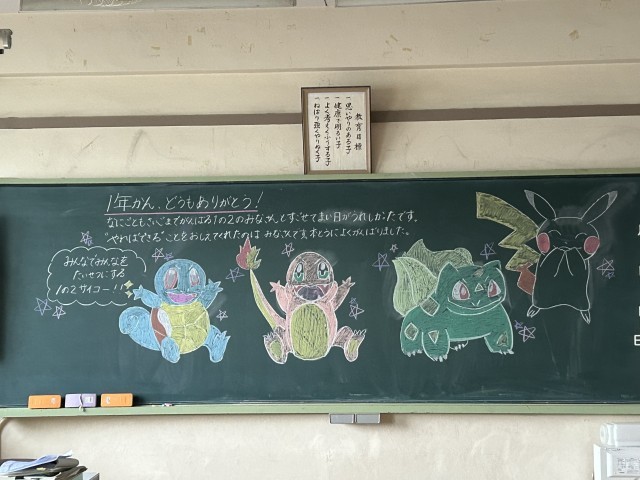 教育目標
一、思いやりのある子
一、健康で明るい子
一、よく考えくふうする子
一、ねばり強くやりぬく子
1年かん、どうもありがとう!
なにごともさいごまでがんばる1の2のみなさんとすごせてまい日がうれしかったです。
"やればできる"ことをおしえてくれたのは みなさんです。本とうによくがんばりました。
みんなでみんなを
たいせつにする
1の2サイコー!!